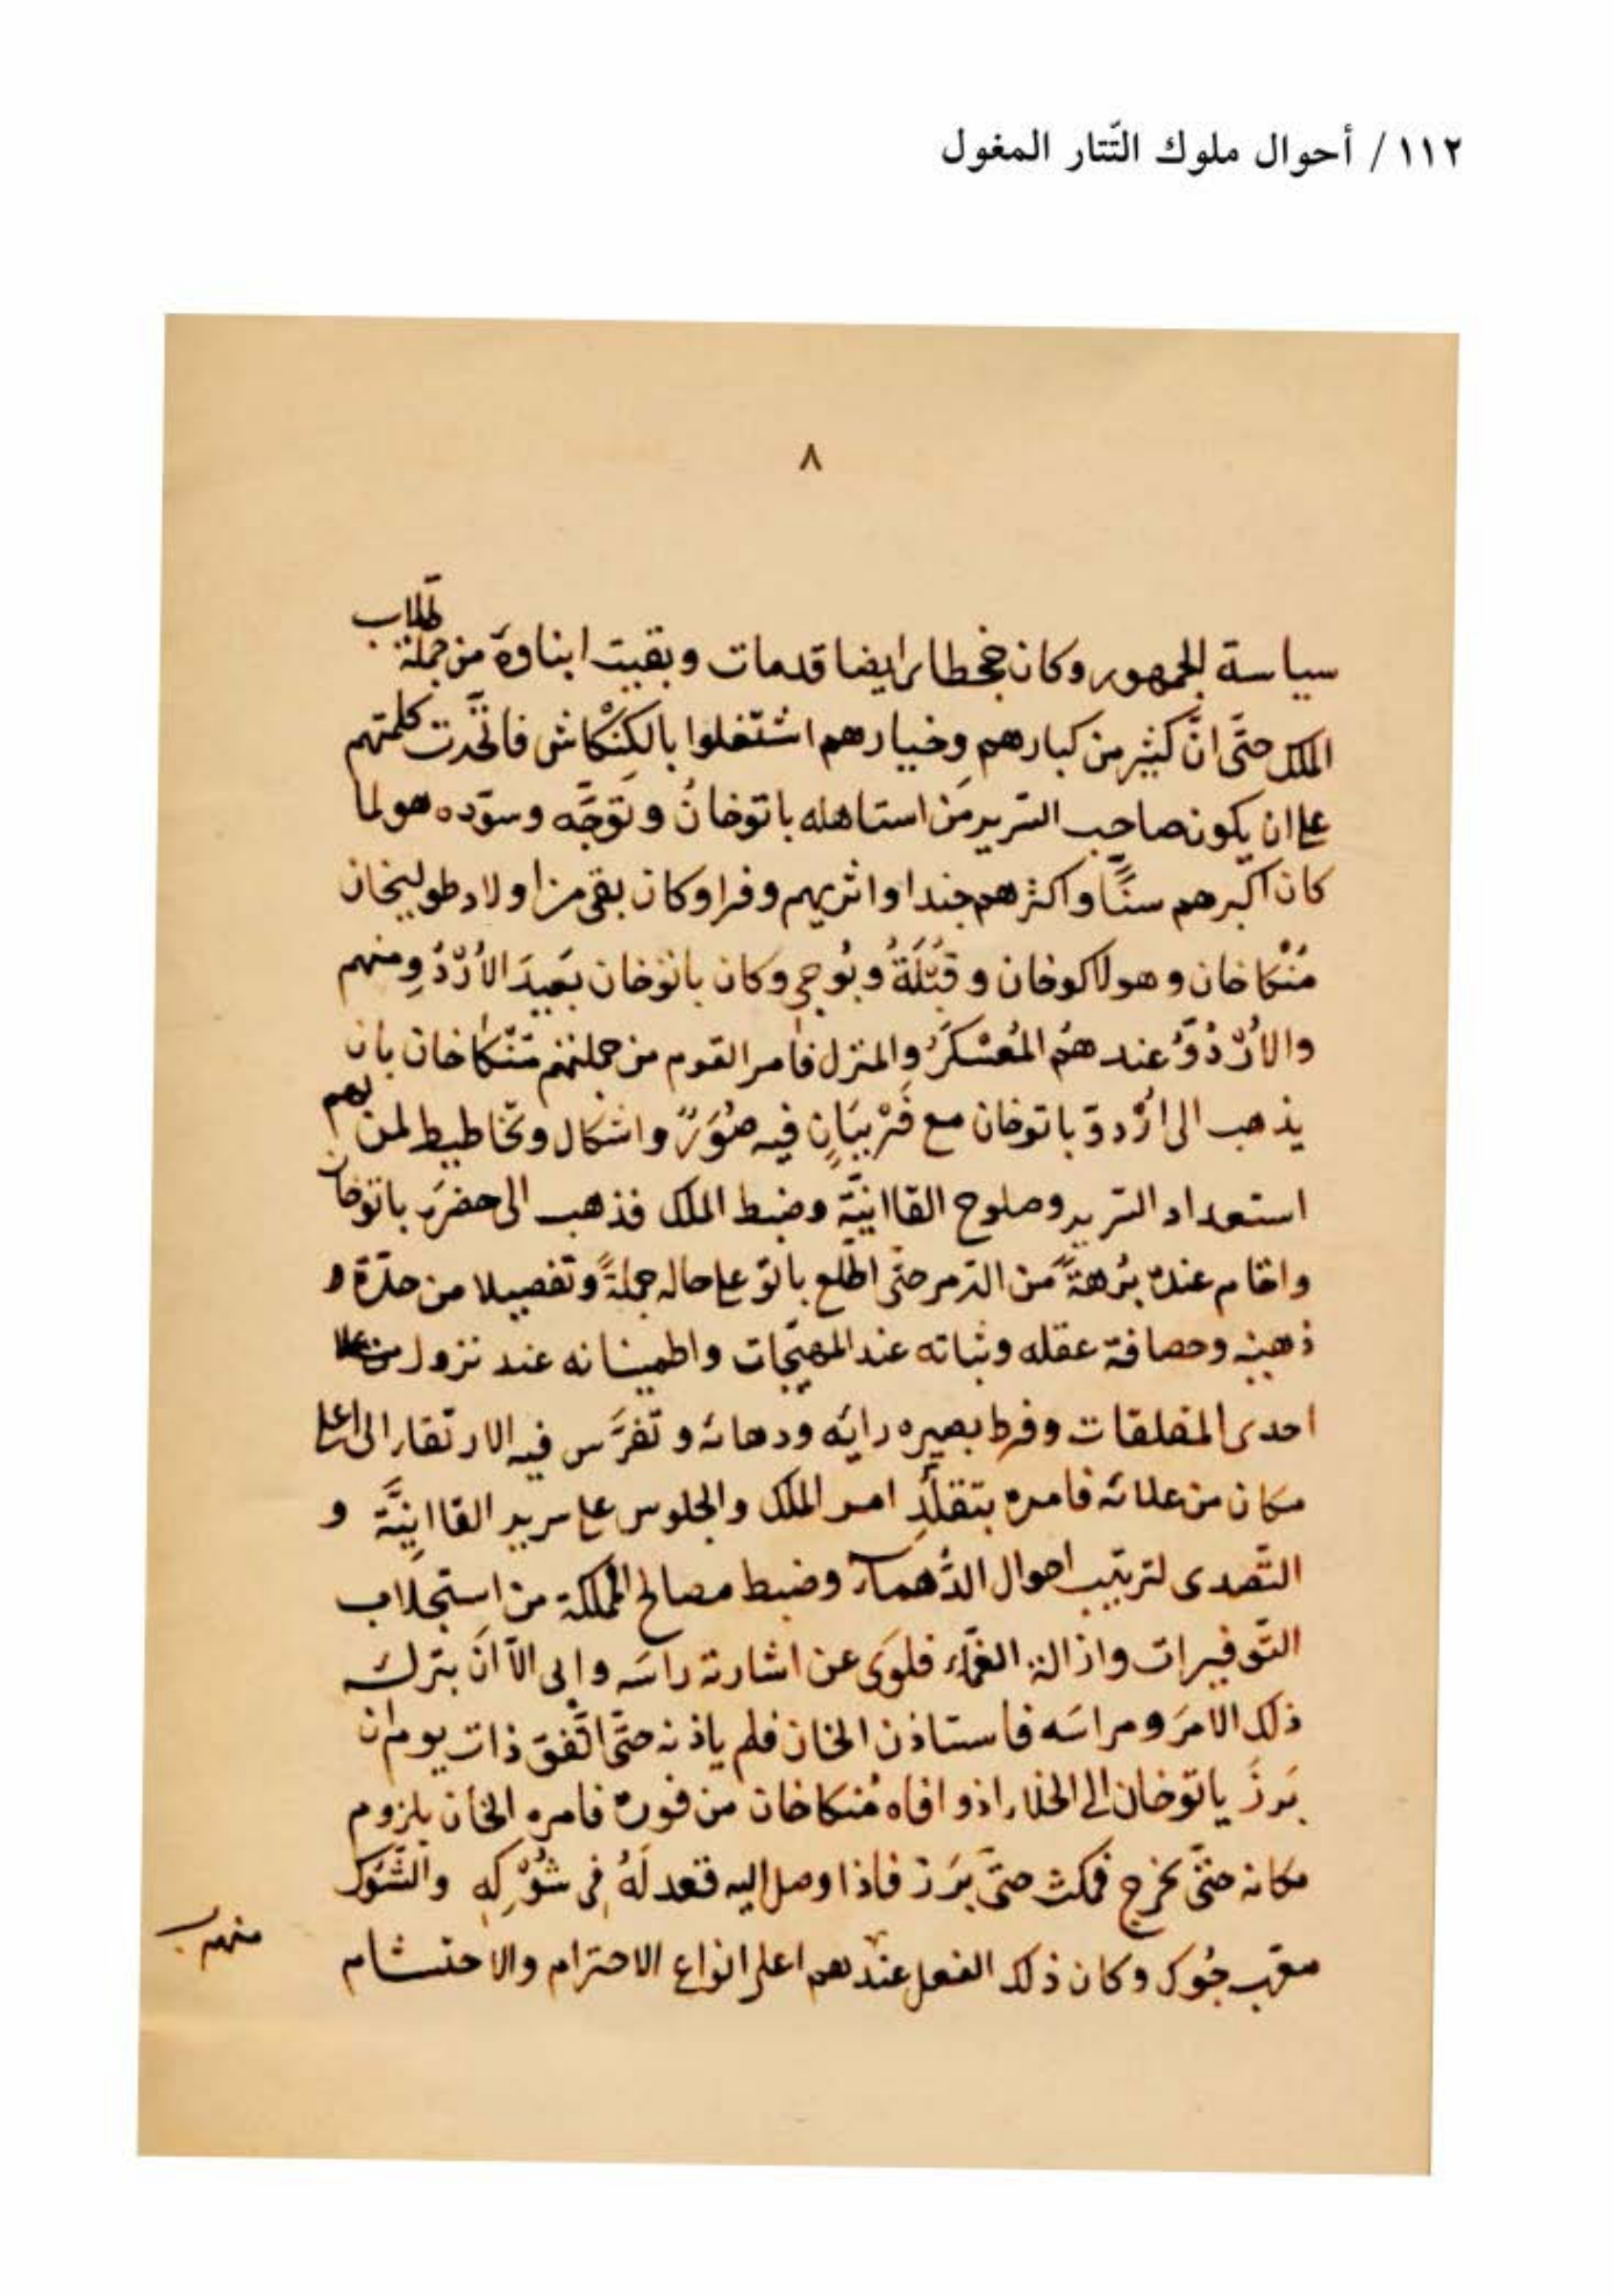 ١١٢ / أحوال ملوك التّتار المغول
٨
سياسة الجمهور وكان جخطاى ايضا قدمات وبقيت ابناوه من جملة طلاب
الملك حتّى انّ كثير من كبارهم وخيارهم اشتغلوا بالكِنْكاش فاتّحدت كلمتهم
على ان يكون صاحب السّرير مَن استاهله باتوخان وتَوَجَّه وسوّده هو لما
كان اكبرهم سنًّا واكثرهم جندا واثريهم وفرا وكان بقى من اولاد طوليخان
مُنْكاخان وهولاكوخان وقُبْلَةُ وبُوجى وكان باتوخان بَعيدَ الأُرْدُ ومنهم
والأُرْدُوُ عندهُم المُعَسْكَرُ والمنزل فامر القوم من جملتهم مُنْكاخان بان
يذهب الى اُرْدوِ باتوخان مع فيه صُوَرٌ واشكال وتخاطيط لمن لهم
استعداد السّرير وصلوح القاانيَّة وضبط الملك فذهب الى حضرة باتوخان
واقام عنده بُرهةً من الدّهر حتّى اطّلع باتو على حاله جملةً وتفصيلا من حدّة و
ذهنه وحصافة عقله وثباته عند المهيّجات واطمينانه عند نزول
احدى المقلقات وفرط بصيره رايه ودهائه وتفرَّس فيه الارتقاء الى اعلى
مكان من علائه فامره بتقلُّدِ امر الملك والجلوس على سرير القاانِيَّة و
التّصدى لترتيب احوال الدَّهماء وضبط مصالح المملكة من استجلاب
التّوفيرات وازالة الغمّاء فلوَى عن اشارته راسَه وابى الّا انْ بترك
ذلك الامرَ ومراسَه فاستاذن الخان فلم ياذنه حتّى اتّفق ذات يوم ان
بَرزَ باتوخان الى الخلاء اذ وافاه مُنكاخان من فوره فامره الخان بلزوم
مكانه حتّى يخرج فمكث حتّى بَرَز فاذا وصل اليه قعد لَهُ فى شُوْكِهِ والشُّوْك
معرّب جُوك وكان ذلك الفعل عندهم اعلى انواع الاحترام والاحتشام